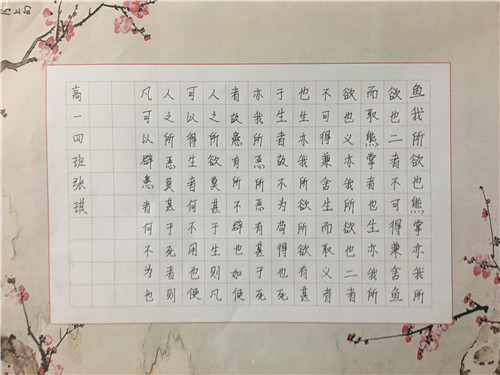 鱼我所欲也熊掌亦我所
欲也二者不可得兼舍鱼
而取熊掌者也生亦我所
欲也义亦我所欲也二者
不可得兼舍生而取义者
也生亦我所欲所欲有甚
于生者故不为苟得也死
亦我所恶所恶有甚于死
者故患有所不辟也如使
人之所欲莫甚于生则凡
可以得生者何不用也使
人之所恶莫甚于死者则
凡可以辟患者何不为也
高一四班张琪